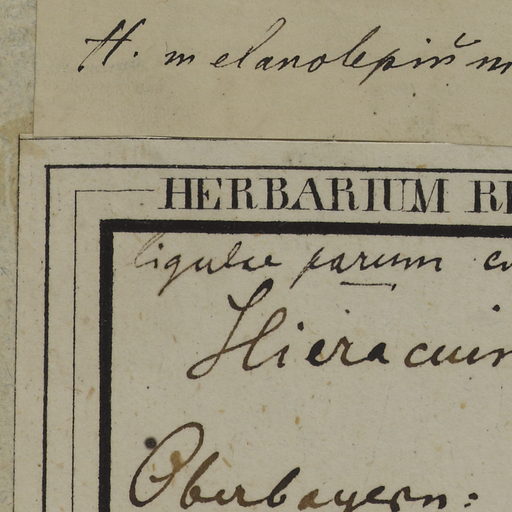 H. melanolepium
HERBARIUM RE
ligulae parum
Hieracium
Oberbayern: